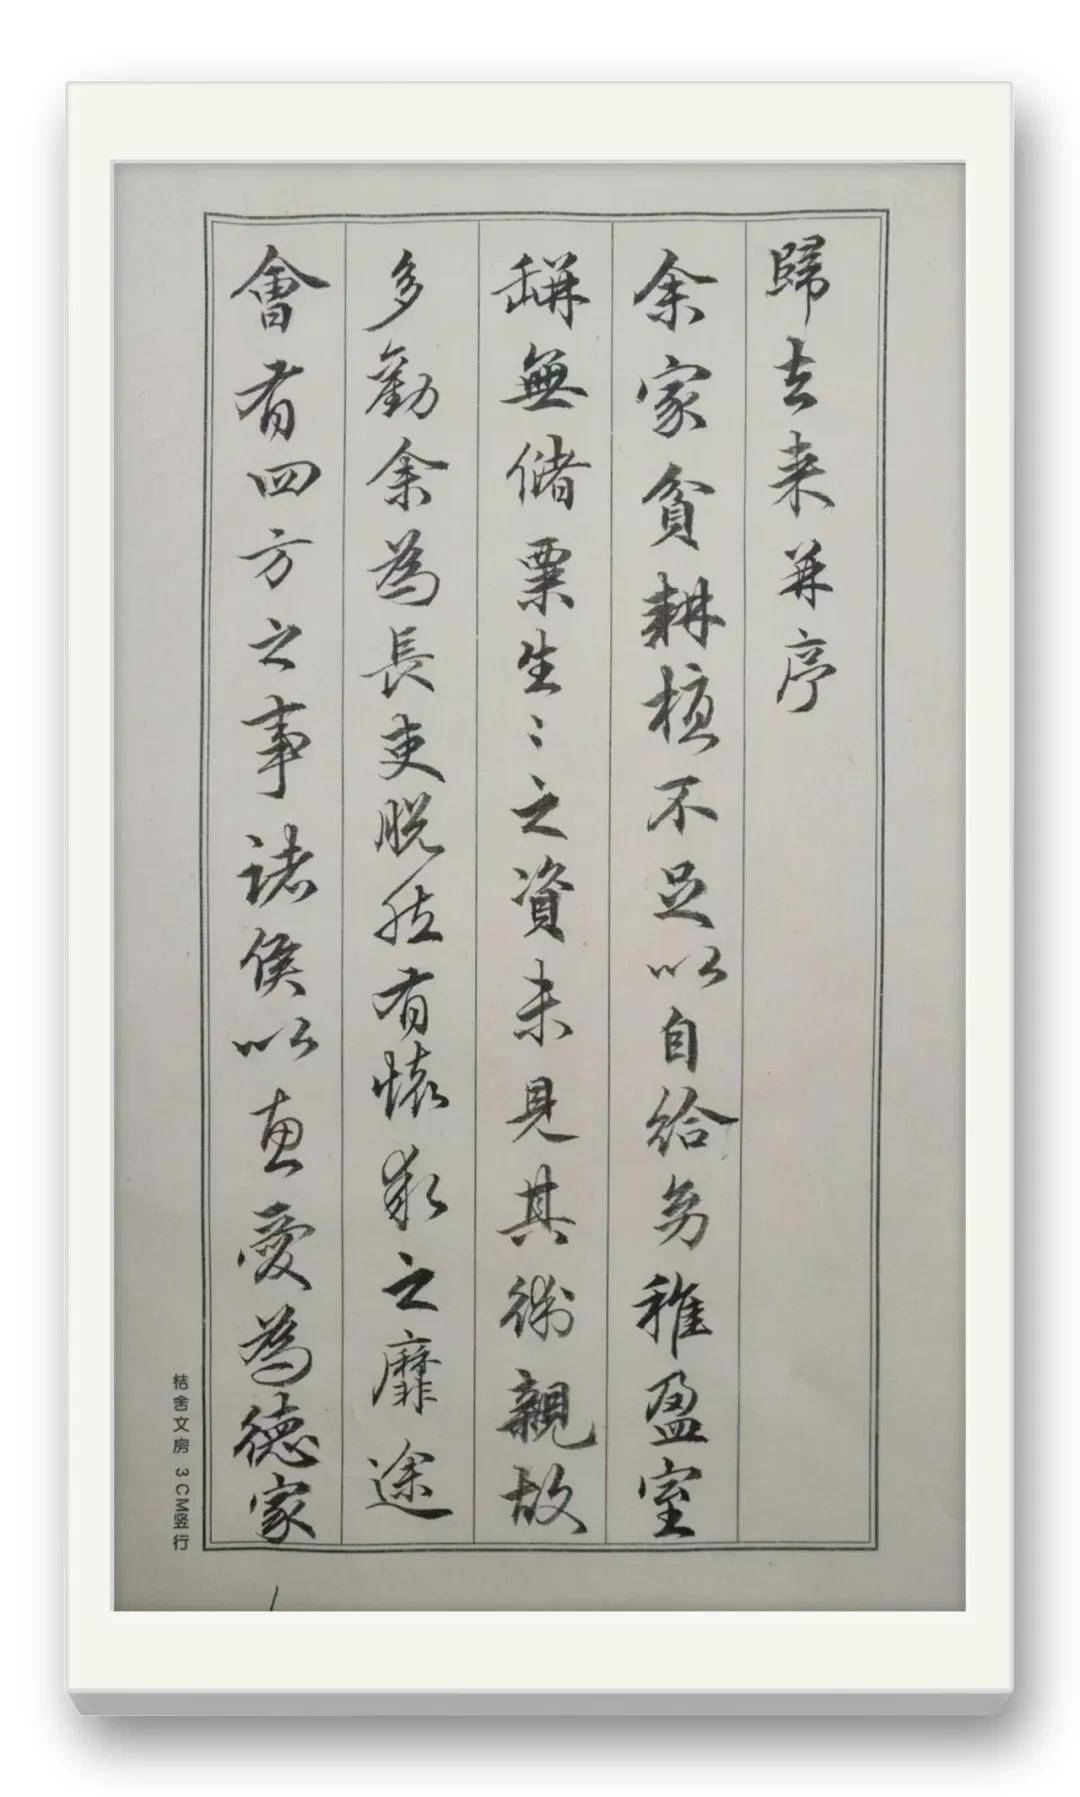 歸去来并序
余家貧耕植不足以自給㓜稚盈室
缾無儲粟生〻之資未見其術親故
多勸余為長吏脱然有懷求之靡途
會有四方之事諸侯以惠愛為德家
桔舍文房 3CM竖行